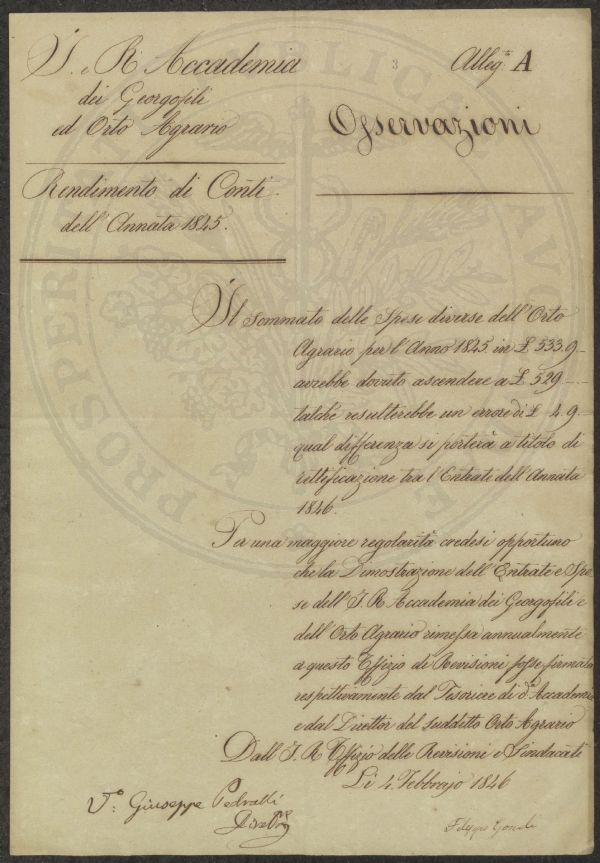 I. e R. Accademia
dei Georgofili
ed Orto Agrario
Rendimento di Conti
dell'Annata 1845.
3
Alleg.to A
Osservazioni
Il sommato delle Spese diverse dell'Orto
Agrario per l'Anno 1845 in £ 533.9.-
avrebbe dovuto ascendere a £ 529.-.-
talchè resulterebbe un errore di £ 4.9.-
qual differenza si porterà a titolo di
rettificazione tra l'Entrate dell'Annata
1846.
Per una maggiore regolarità credesi opportuno
che la Dimostrazione dell'Entrate e Spe
se dell'I. R. Accademia dei Georgofili e
dell'Orto Agrario rimessa annualmente
a questo Uffizio di Revisioni fosse firmata
respettivamente dal Tesoriere di d.a Accademia
e dal Direttor del suddetto Orto Agrario
Dall'I. R. Uffizio delle Revisioni e Sindacati
Li 4 Febbrajo 1846
V.o Giuseppe
Filippo
PROSPERITATI PUBLICAE AU